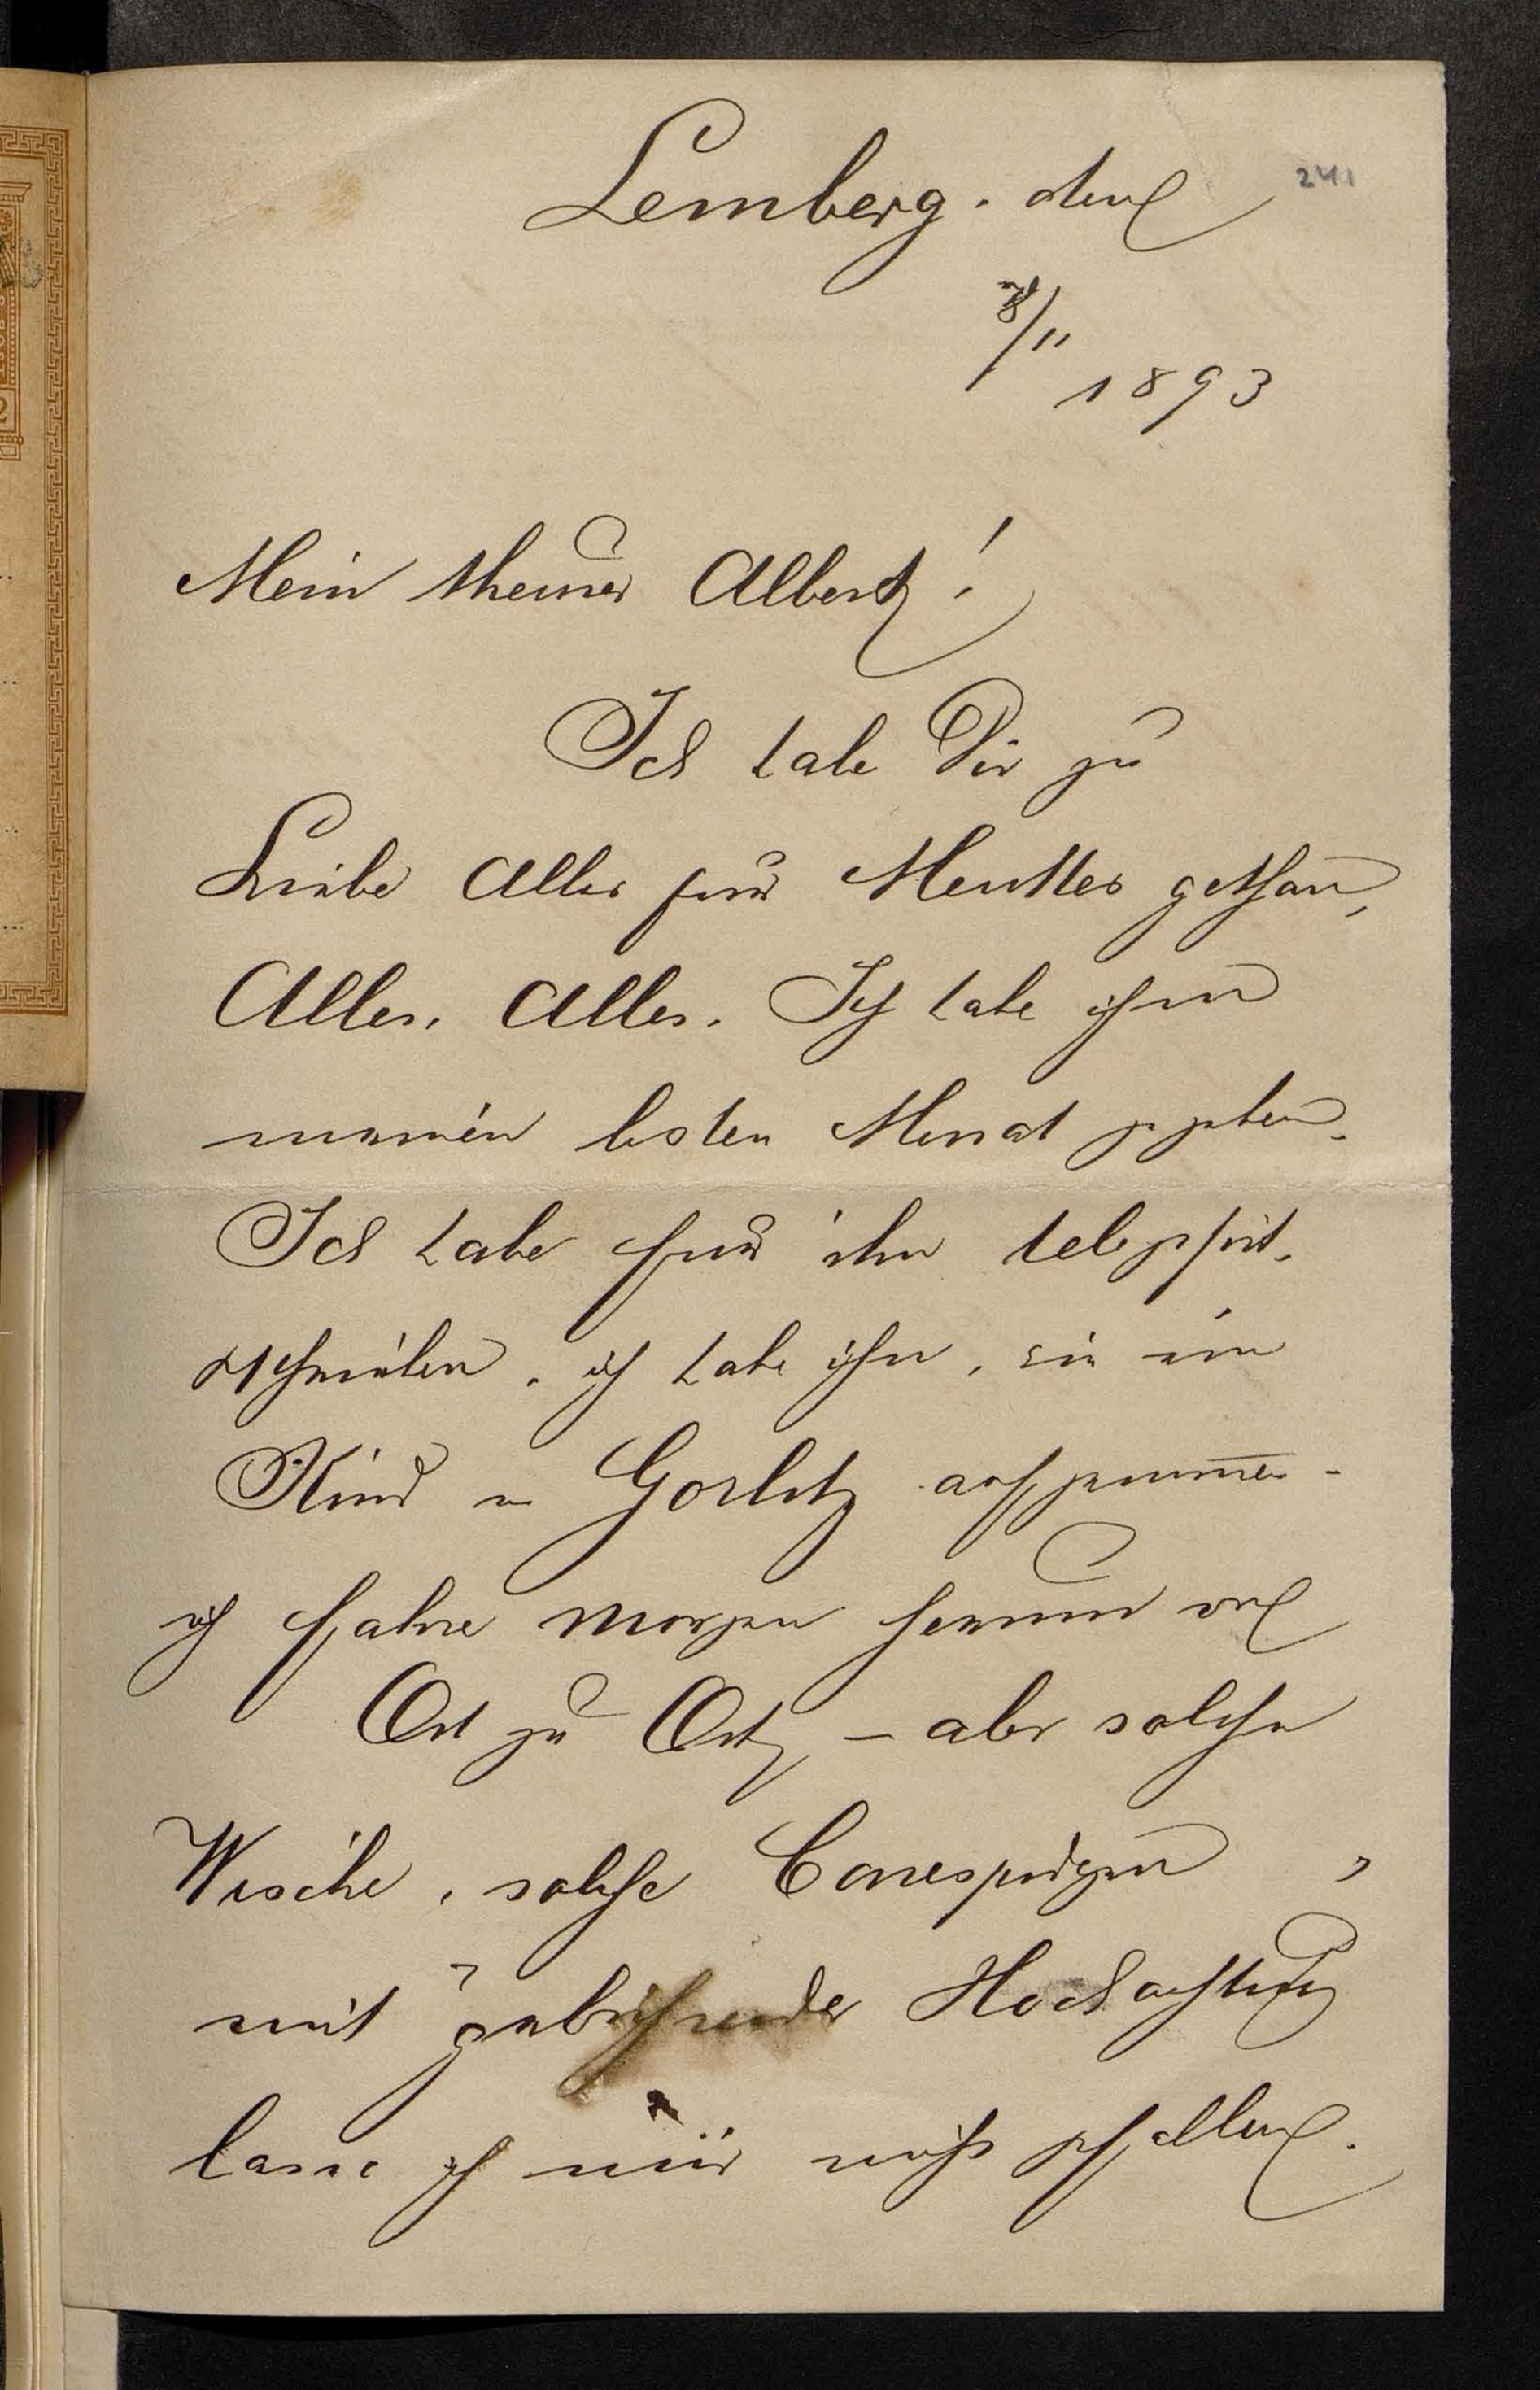 241
Lemberg, den
8/11
1893
Mein theurer Albert!
Ich habe Dir zu
Liebe Alles für Menttes gethan,
Alles, Alles. Ich habe ihm
meinen besten Monat gegeben.
Ich habe für ihn
geschrieben, ich habe ihn, wie ein
Kind in Gorlitz aufgenommen -
ich fahre morgen herum von
Ort zu Ort, - aber solche
Wische, solche Correspondenzen,
mit Hochachtung
lasse ich mir nicht gefallen.